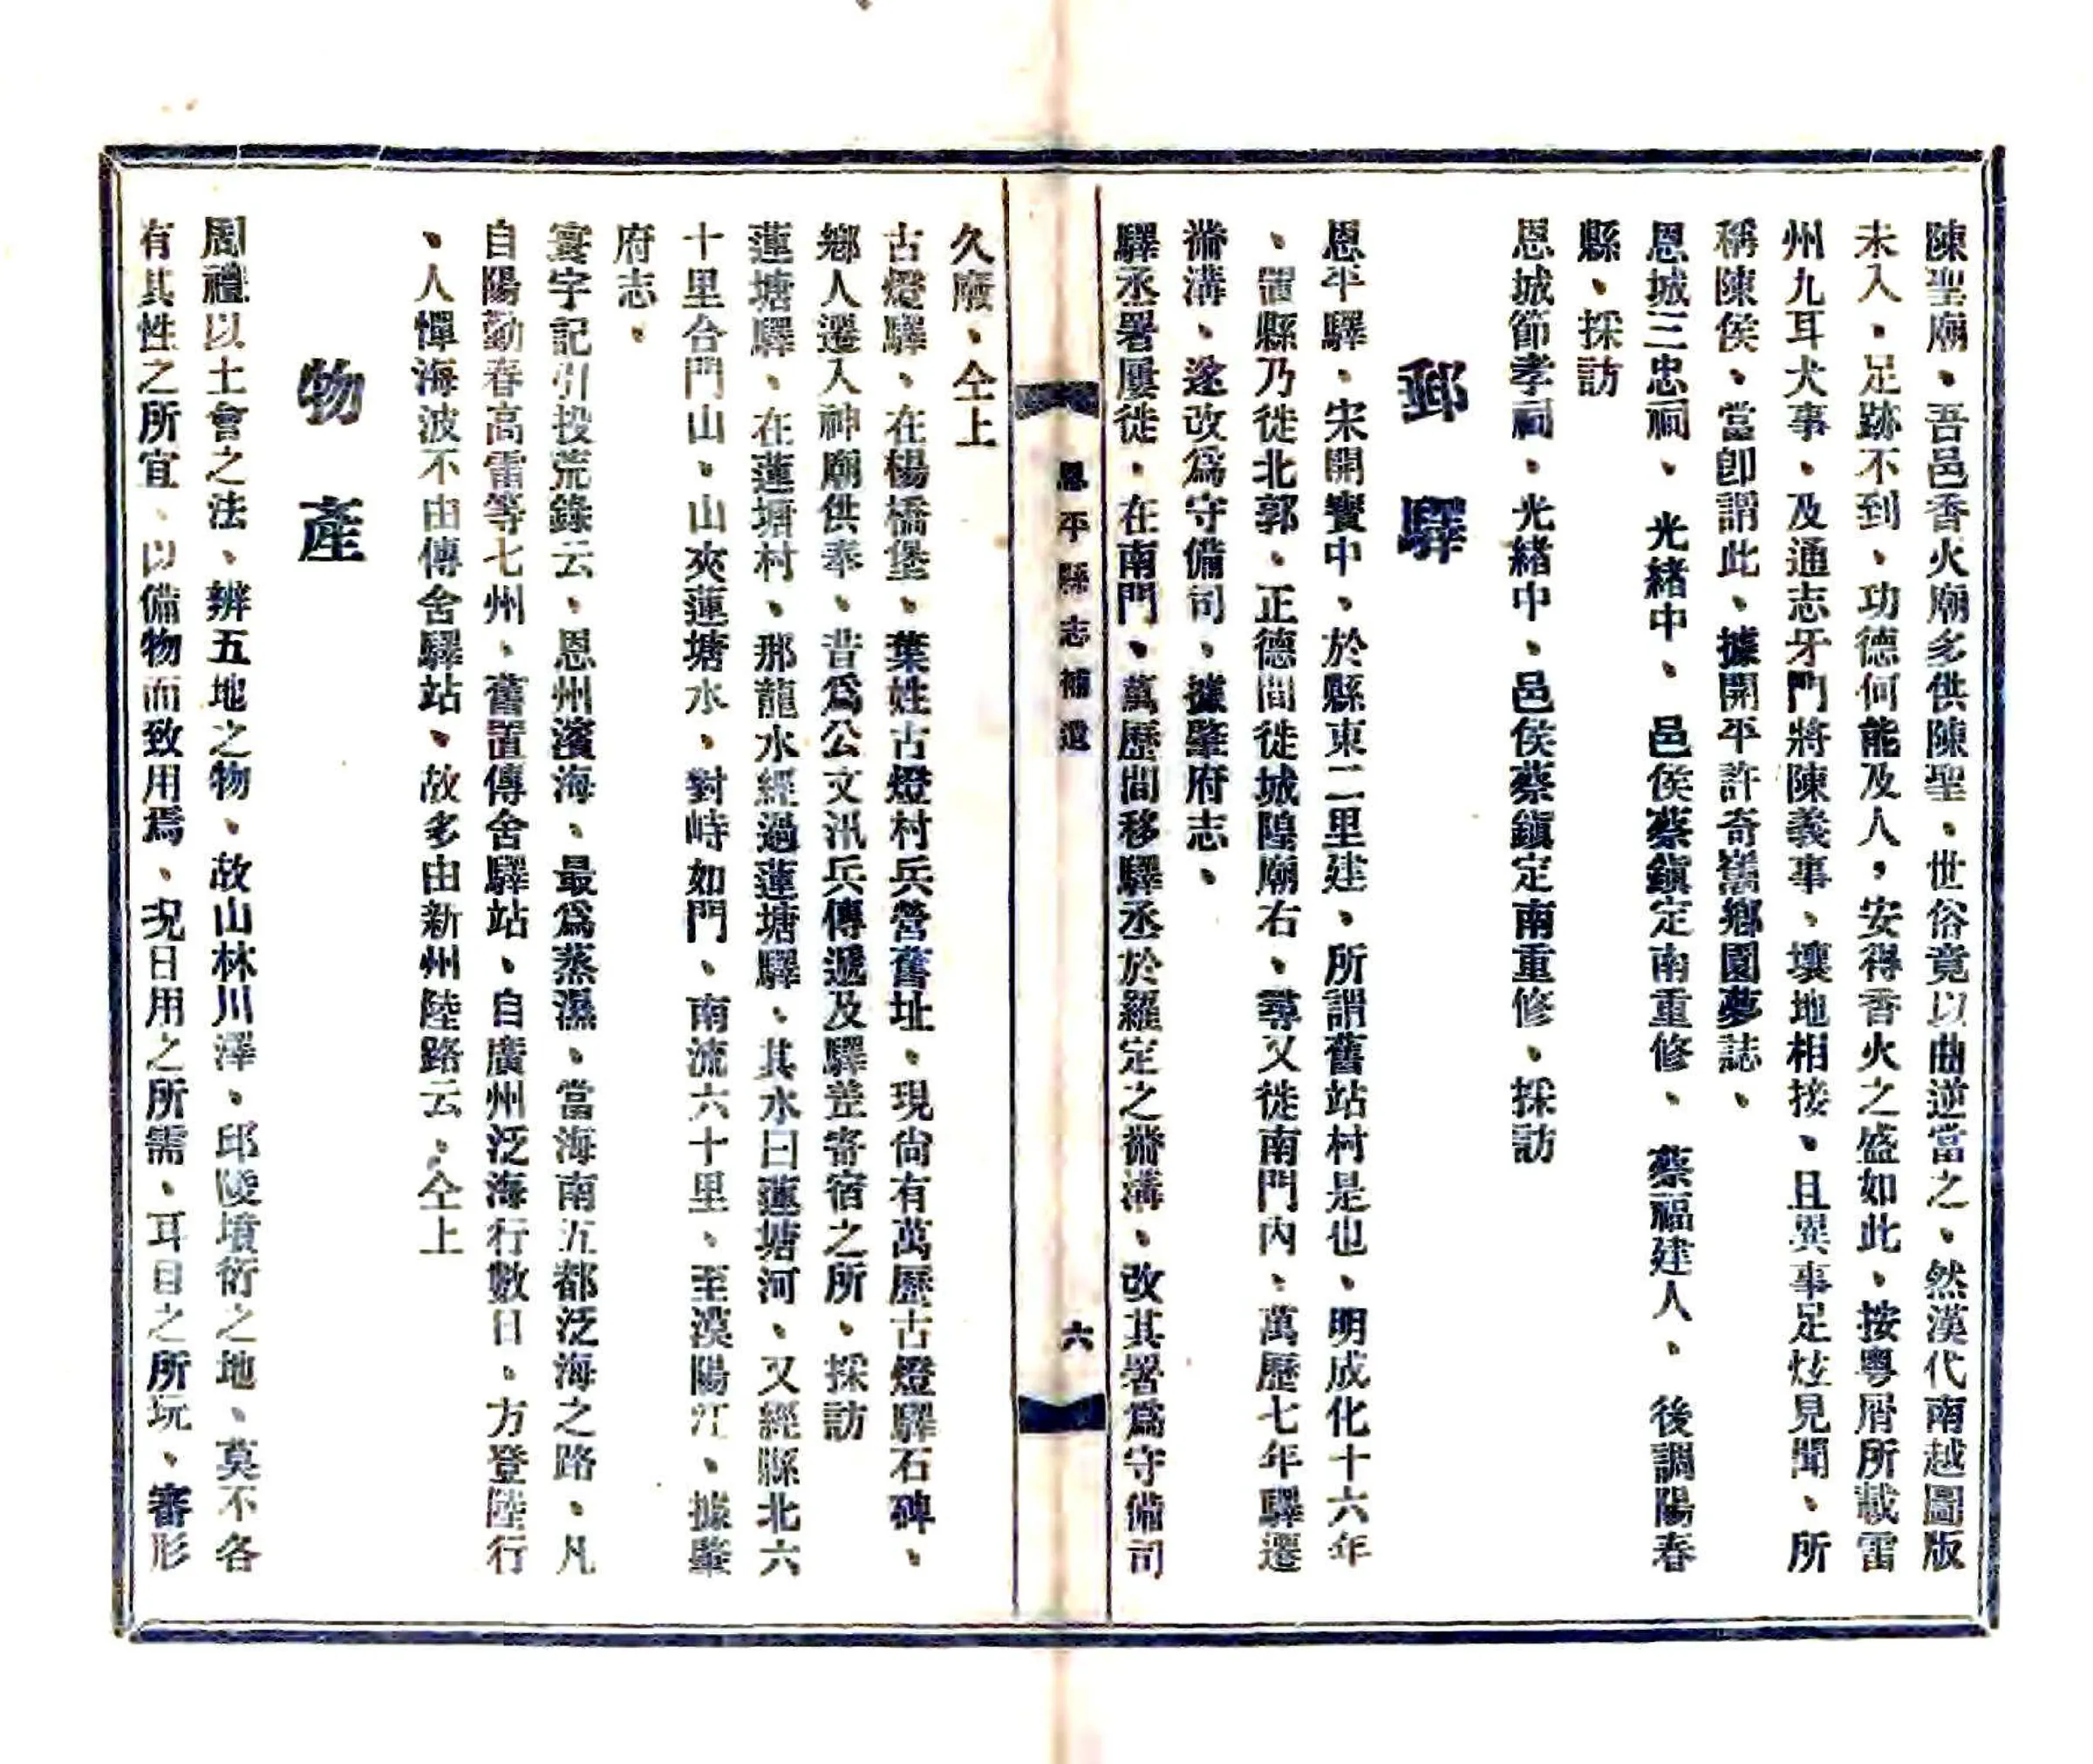 陳聖廟、吾邑香火廟多供陳聖、世俗竟以曲逆當之、然漢代南越圖版
未入、足跡不到、功德何能及人，安得香火之盛如此、按粵屑所載雷
州九耳犬事、及通志牙門將陳義事、壤地相接、且異事足炫見聞、所
稱陳侯、當卽謂此、據開平許奇嶲鄉園夢誌、
恩城三忠祠、光緒中、邑侯蔡鎭定南重修、蔡福建人、後調陽春
縣、採訪
恩城節孝祠、光緒中、邑侯蔡鎭定南重修、採訪
郵驛
恩平驛、宋開寶中、於縣東二里建、所謂舊站村是也、明成化十六年
、置縣乃徙北郭、正德間徙城隍廟右、尋又徙南門內、萬歷七年驛遷
㴞溝、遂改爲守備司、據肇府志、
驛丞署屢徙、在南門、萬歷間移驛丞於羅定之㴞溝、改其署爲守備司
恩平縣志補遺
六
久廢、仝上
古燈驛、在楊橋堡、葉姓古燈村兵營舊址、現尙有萬歷古燈驛石碑、
鄉人遷入神廟供奉、昔爲公文汛兵傳遞及驛差寄宿之所、採訪
蓮塘驛、在蓮塘村、那龍水經過蓮塘驛、其水曰蓮塘河、又經縣北六
十里合門山、山夾蓮塘水、對峙如門、南流六十里、至漠陽江、據肇
府志、
寰宇記引投荒錄云、恩州濱海、最爲蒸濕、當海南五都泛海之路、凡
自陽勤春高雷等七州、舊置傳舍驛站、自廣州泛海行數日、方登陸行
、人憚海波不由傳舍驛站、故多由新州陸路云、仝上
物產
周禮以土會之法、辨五地之物、故山林川澤、邱陵墳衍之地、莫不各
有其性之所宜、以備物而致用焉、況日用之所需、耳目之所玩、審形